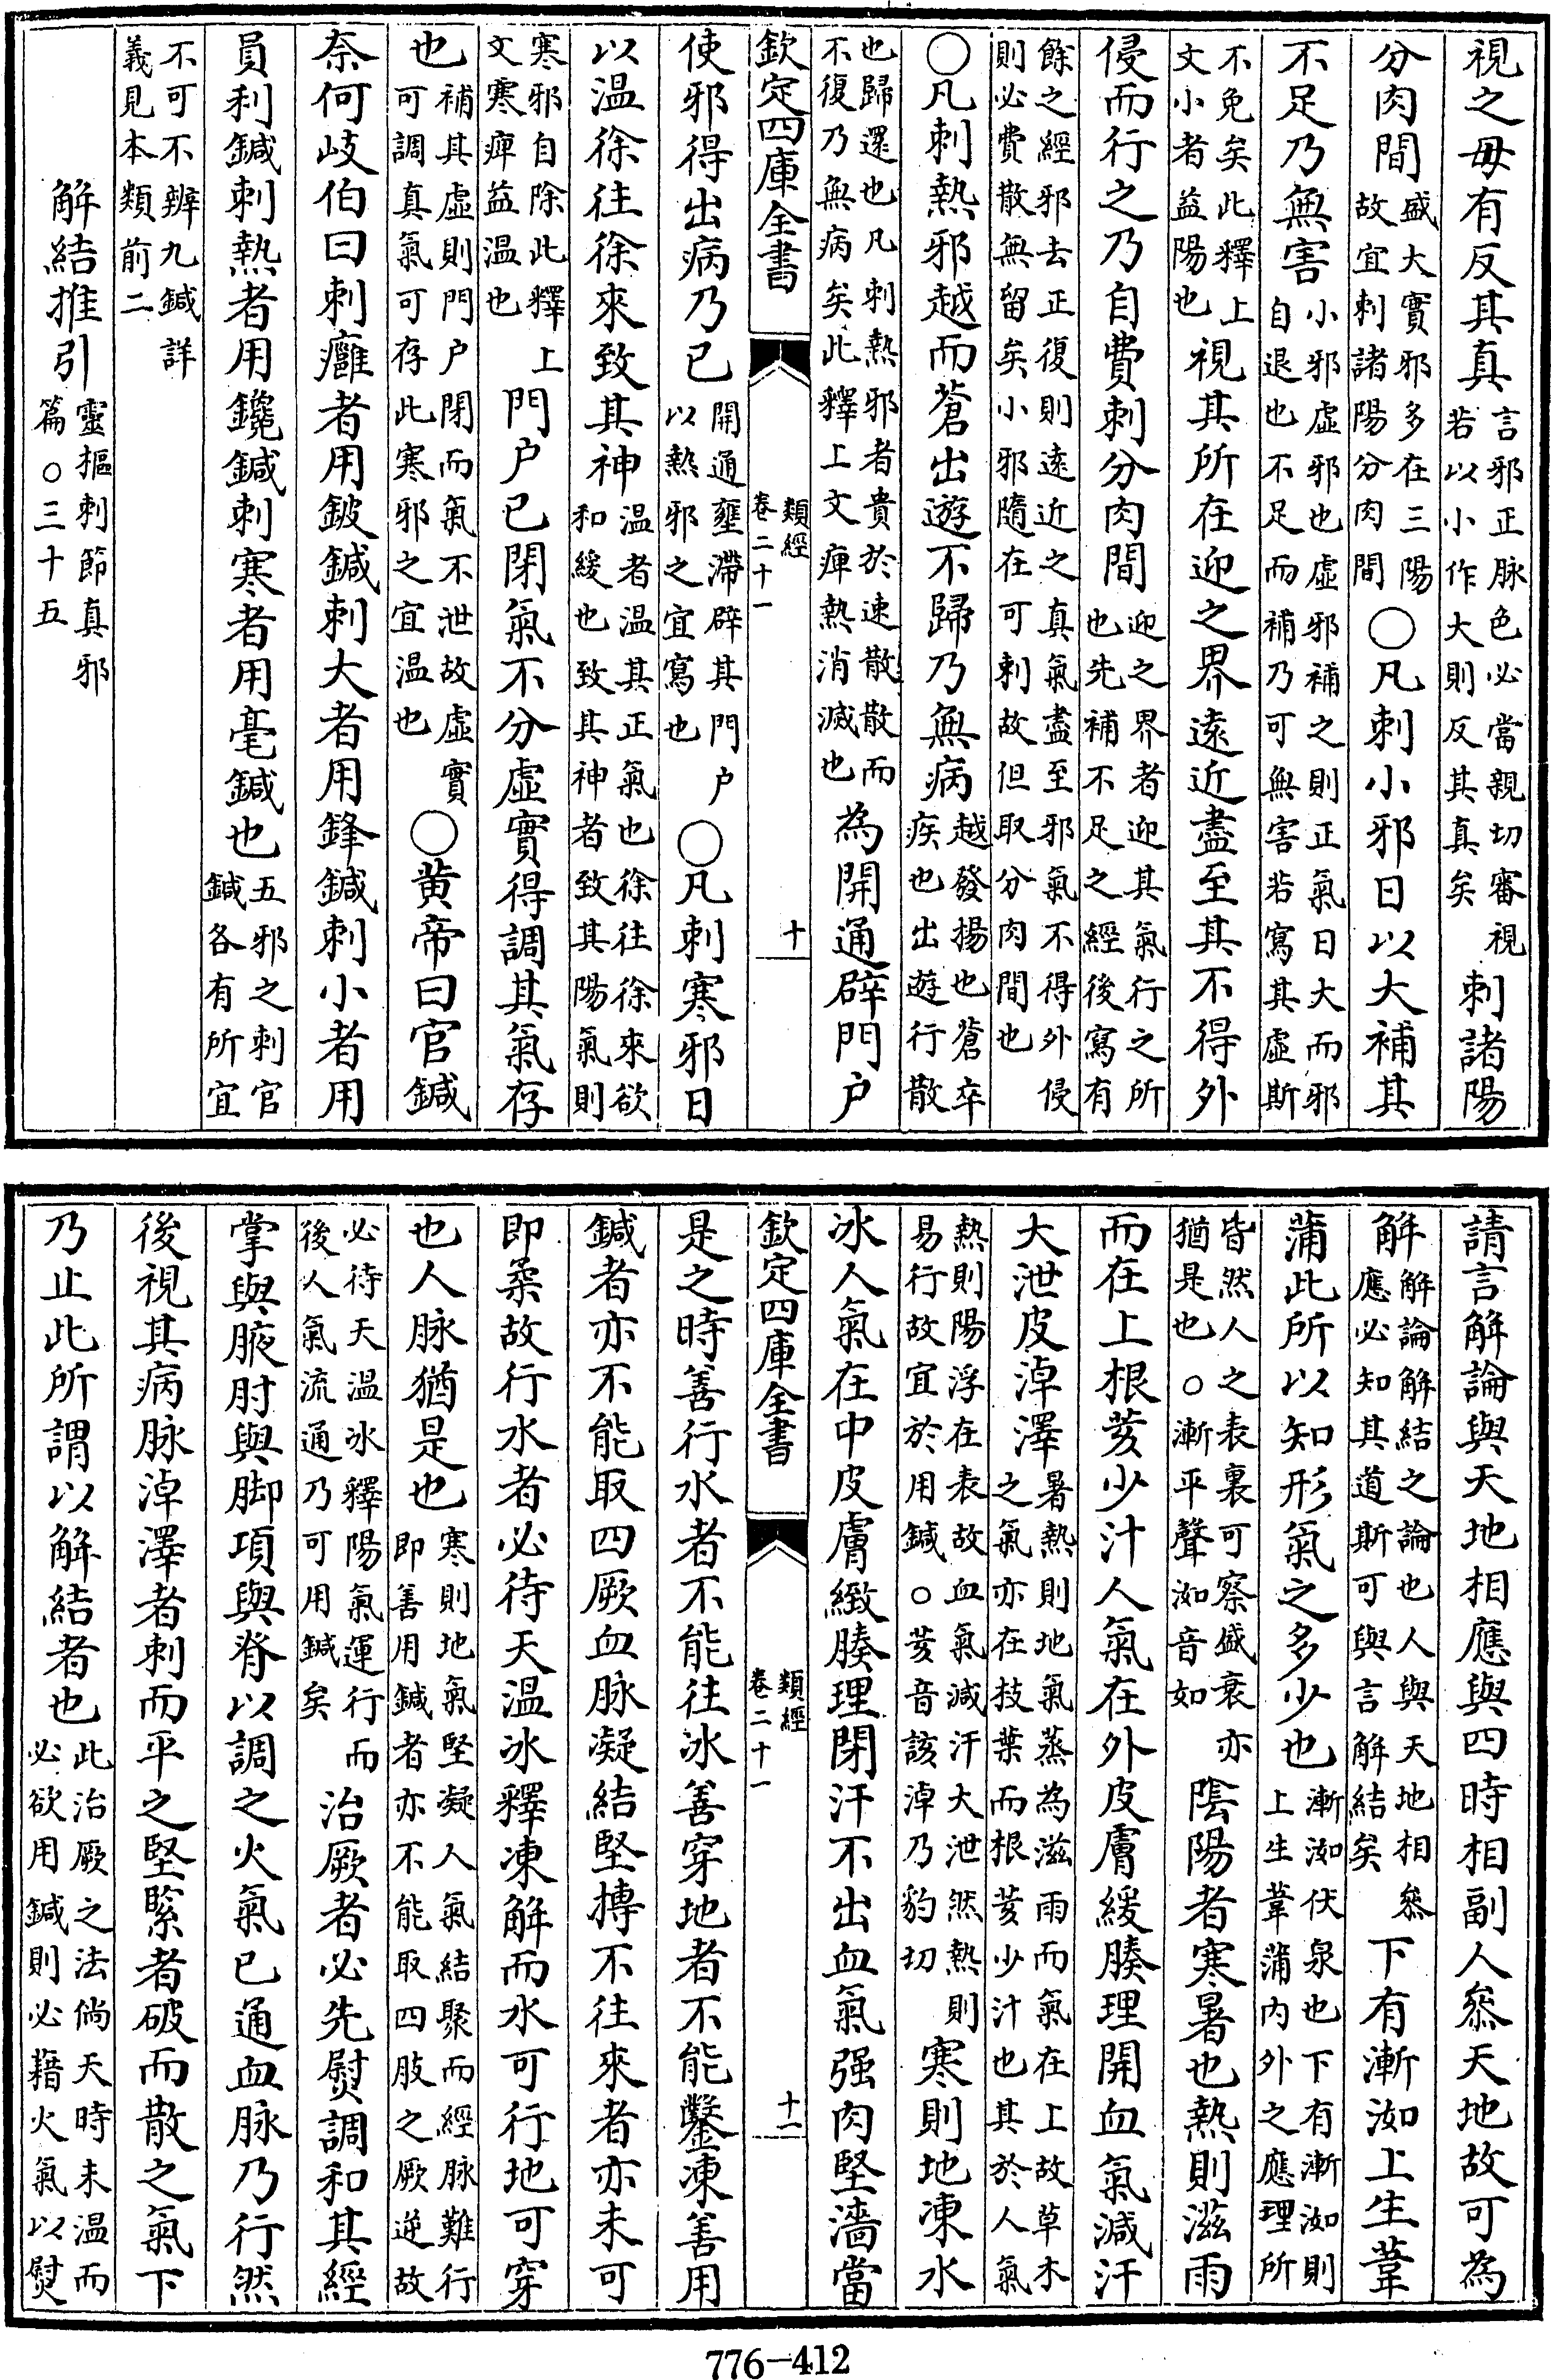 視之毋有反其真言邪正脉色必當親切審視若以小作大則反其真矣刺諸陽
分肉間盛大實邪多在三陽故宜刺諸陽分肉間○凡刺小邪日以大補其
不足乃無害小邪虛邪也虛邪補之則正氣日大而邪自退也不足而補乃可無害若寫其虛斯
不免矣此釋上文小者益陽也視其所在迎之界遠近盡至其不得外
侵而行之乃自費刺分肉間迎之界者迎其氣行之所也先補不足之經後寫有
餘之經邪去正復則遠近之真氣盡至邪氣不得外侵則必費散無留矣小邪隨在可刺故但取分肉間也
○凡刺熱邪越而蒼出遊不歸乃無病越發揚也蒼卒疾也出遊行散
也歸還也凡刺熱邪者貴於速散散而不復乃無病矣此釋上文痺熱消滅也為開通辟門户
欽定四庫全書 類經卷二十一 十
使邪得出病乃已開通壅滯辟其門户以熱邪之宜寫也○凡刺寒邪日
以温徐往徐來致其神温者温其正氣也徐往徐來欲和緩也致其神者致其陽氣則
寒邪自除此釋上文寒痺益温也門户已閉氣不分虛實得調其氣存
也補其虛則門户閉而氣不泄故虛實可調真氣可存此寒邪之宜温也○黄帝曰官鍼
奈何岐伯曰刺癰者用鈹鍼刺大者用鋒鍼刺小者用
員利鍼刺熱者用鑱鍼刺寒者用毫鍼也五邪之刺官鍼各有所宜
不可不辨九鍼詳義見本類前二
解結推引靈樞刺節真邪篇○三十五
請言解論與天地相應與四時相副人叅天地故可為
解解論解結之論也人與天地相叅應必知其道斯可與言解結矣下有漸洳上生葦
蒲此所以知形氣之多少也漸洳伏泉也下有漸洳則上生葦蒲内外之應理所
皆然人之表裏可察盛衰亦猶是也○漸平聲洳音如陰陽者寒暑也熱則滋雨
而在上根荄少汁人氣在外皮膚緩腠理開血氣減汗
大泄皮淖澤暑熱則地氣蒸為滋雨而氣在上故草木之氣亦在技葉而根荄少汁也其於人氣
熱則陽浮在表故血氣減汗大泄然熱則易行故宜於用鍼○荄音該淖乃豹切寒則地凍水
冰人氣在中皮膚緻腠理閉汗不出血氣强肉堅濇當
欽定四庫全書 類經卷二十一 十一
是之時善行水者不能往冰善穿地者不能鑿凍善用
鍼者亦不能取四厥血脉凝結堅摶不往來者亦未可
即柔故行水者必待天温冰釋凍解而水可行地可穿
也人脉猶是也寒則地氣堅凝人氣結聚而經脉難行即善用鍼者亦不能取四肢之厥逆故
必待天温冰釋陽氣運行而後人氣流通乃可用鍼矣治厥者必先熨調和其經
掌與腋肘與脚項與脊以調之火氣已通血脉乃行然
後視其病脉淖澤者刺而平之堅緊者破而散之氣下
乃止此所謂以解結者也此治厥之法倘天時未温而必欲用鍼則必藉火氣以熨
776-412